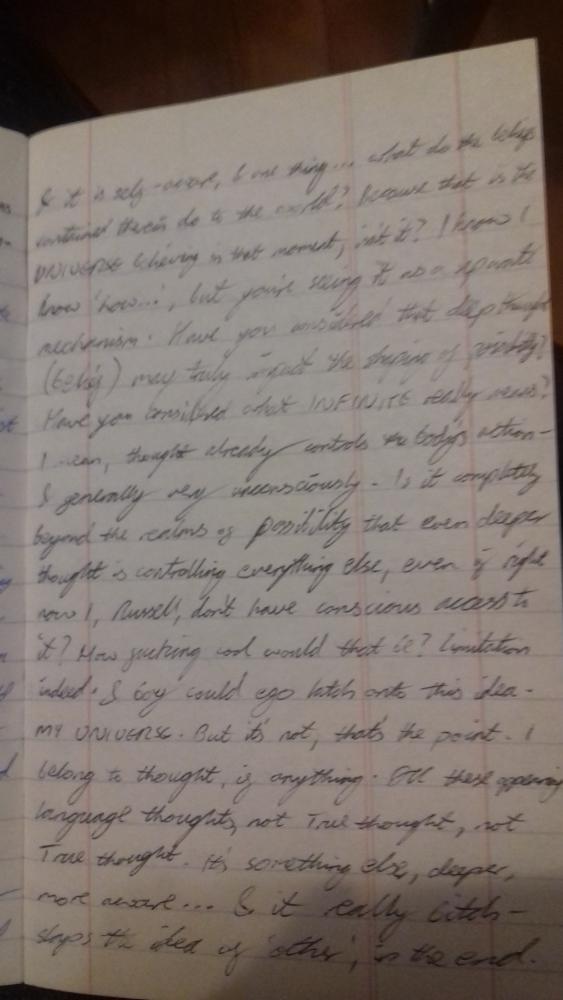 & it is self-aware, & one thing... what do the beliefs
contained therein do to the world? Because that is the
UNIVERSE believing in that moment, isn't it? I know I
know 'how...', but you're seeing it as a separate
mechanism. Have you considered that deep thought
(belief) may truly impact the shaping of possibility?
Have you considered what INFINITE really means?
I mean, thought already controls the body's action-
& generally very unconsciously. Is it completely
beyond the realms of possibility that even deeper
thought is controlling everything else, even if right
now I, Russell, don't have conscious access to
it? How fucking cool would that be? Limitation
indeed. & boy could ego latch onto this idea-
MY UNIVERSE. But it's not, that's the point. I
belong to thought, if anything. All these appearing
language thoughts, not True thought, not
True thought. It's something else, deeper,
more aware... & it really bitch-
slaps the idea of 'other', in the end.